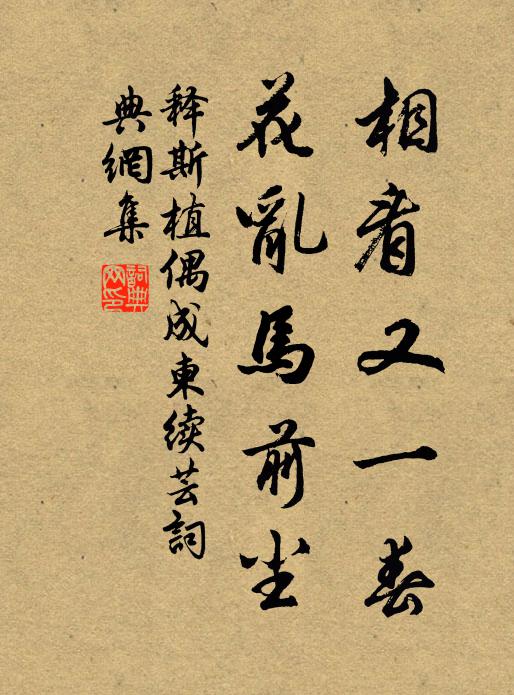 相看又一春
花亂馬前尘
释斯植偶成東续芸詞
典網集
詞典网印